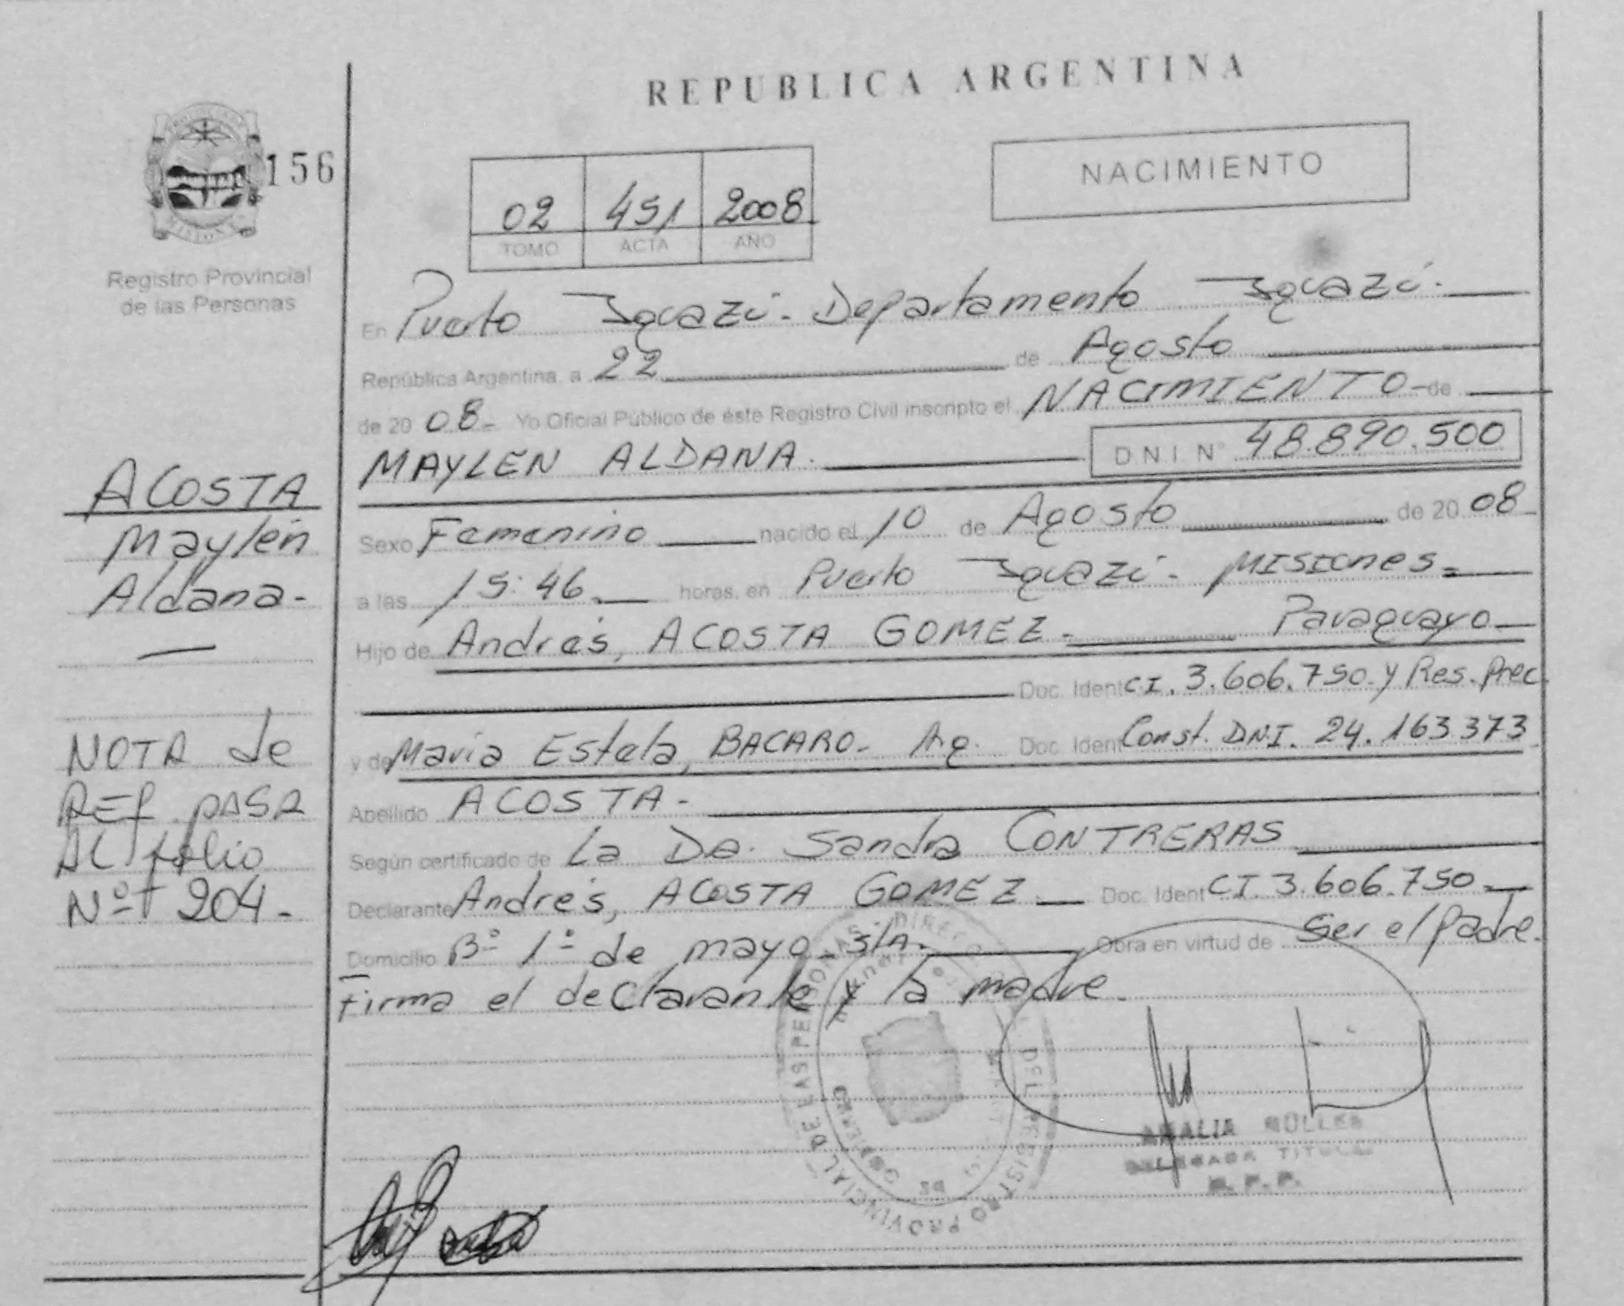 REPUBLICA ARGENTINA
156
NACIMIENTO
02 451 2008
TOMO ACTA AÑO
Registro Provincial
de las Personas
En Puerto Iguazú. Departamento Iguazú.
República Argentina, a 22 de Agosto
de 2008- Yo Oficial Público de éste Registro Civil inscripto el NACIMIENTO- de
MAYLEN ALDANA. D.N.I. Nº 48.890.500
Sexo Femenino nacido el 10 de Agosto de 2008
a las 15:46 horas, en Puerto Iguazú- MISIONES
Hijo de Andrés, ACOSTA GOMEZ- Paraguayo
Doc. Ident CI. 3.606.750. y Res. Prec.
y de María Estela, BACARO- Ag. Doc. Ident Const. DNI. 24.163.373
Apellido ACOSTA-
Según certificado de La Da. Sandra CONTRERAS
Declarante Andrés, ACOSTA GOMEZ Doc. Ident CI 3.606.750-
Domicilio Bº 1º de mayo s/n. Obra en virtud de Ser el padre.
Firma el declarante y la madre.
ACOSTA
Maylén
Aldana-
NOTA de
REF. PASA
AL folio
Nº 204-
REGISTRO PROVINCIAL DE LAS PERSONAS
AMALIA
DELEGADA TITULAR
R. P. P.